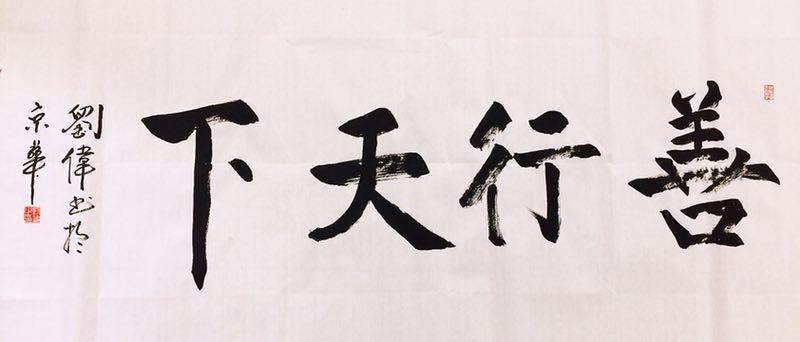 善行天下
劉偉书於
京華